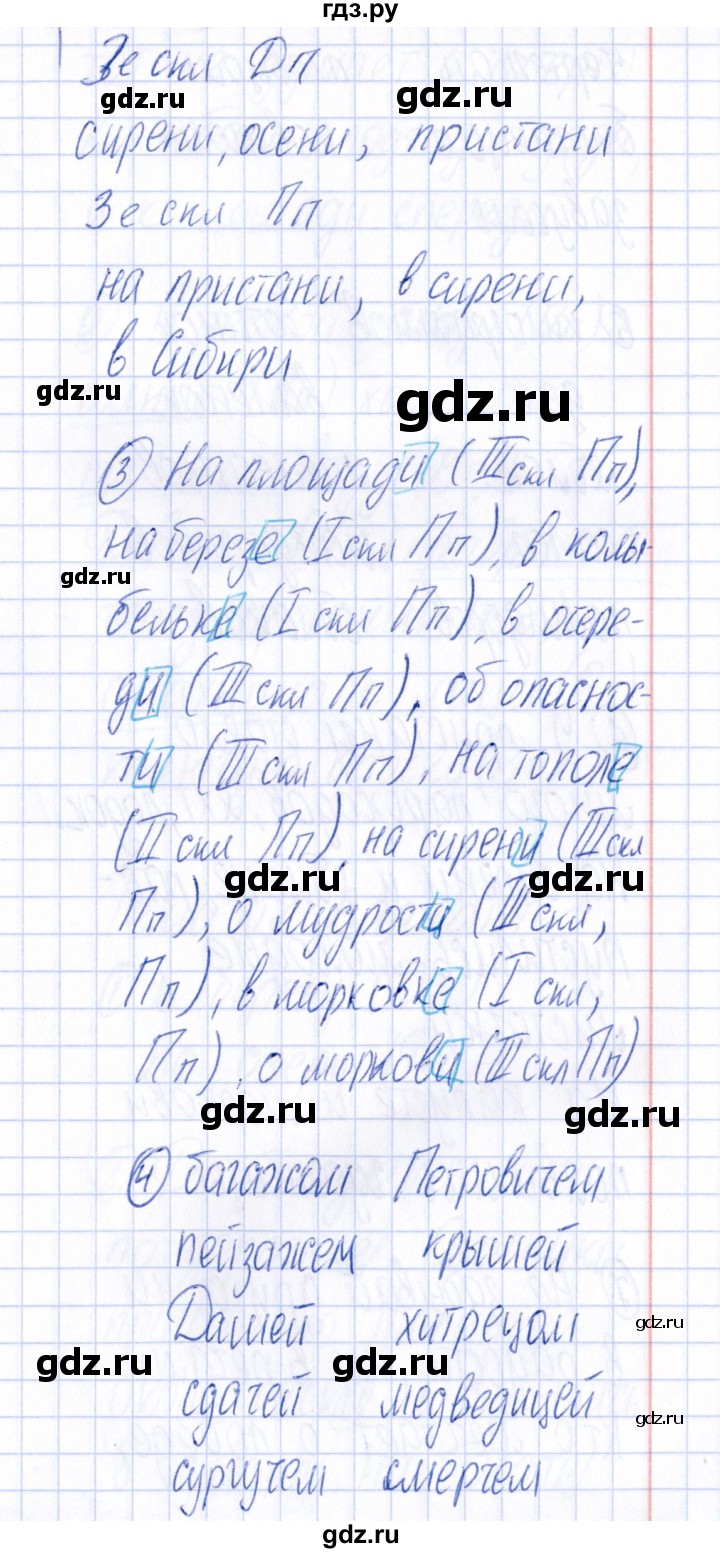 гдз.ру
3е скл Дп
gdz.ru gdz.ru
сирени, осени, пристани
3е скл Пп
на пристани, в сирени,
в Сибири
gdz.ru gdz.ru
③ На площади (III скл Пп),
на березе (I скл Пп), в колы-
gdz.ru
бельке (I скл Пп), в очере-
ди (III скл Пп), об опаснос-
ти (III скл Пп), на тополе
(II скл Пп), на сирени (III скл
gdz.ru gdz.ru
Пп), о мудрости (III скл,
Пп), в морковке (I скл,
Пп), о моркови (III скл Пп)
gdz.ru gdz.ru
④ багажом Петровичем
пейзажем крышей
Дашей хитрецом
gdz.ru
gdz.ru gdz.ru
сдачей медведицей
gdz.ru
сургучем смерчем
gdz.ru